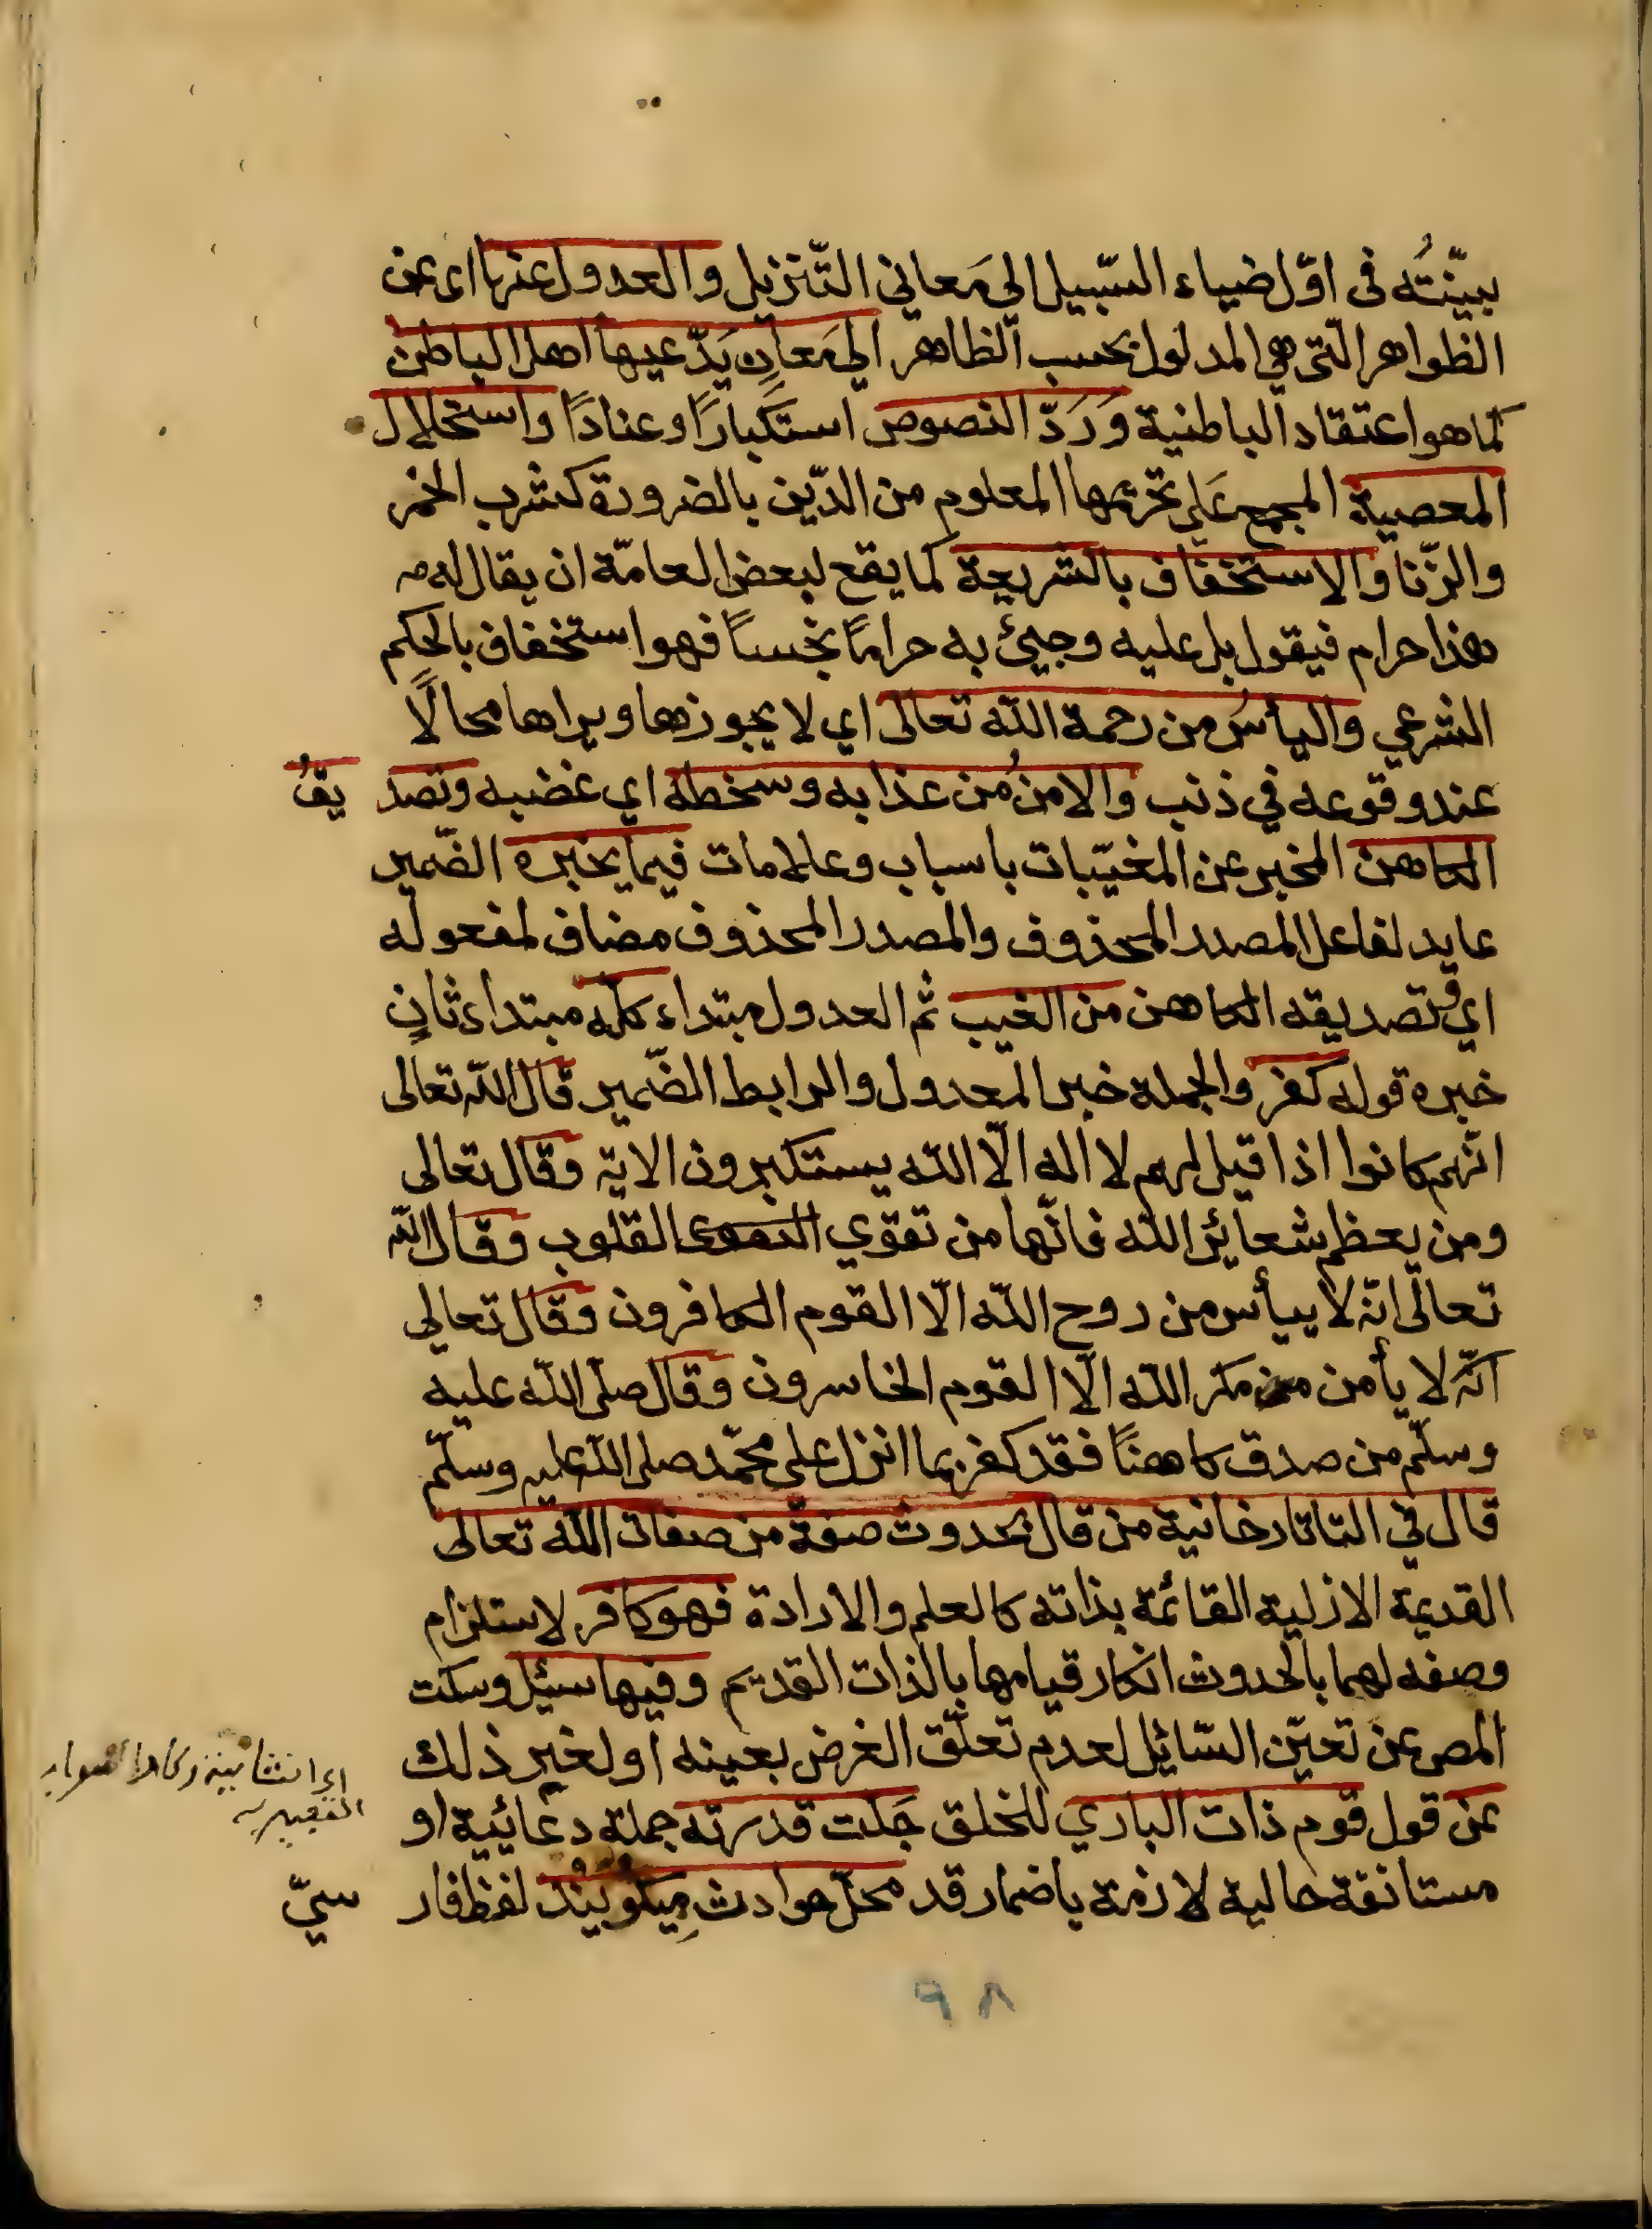 بينّتُه فى اوّل ضياء السّبيل الى مَعاني التّنزيل والعدول عنها اى عن
الظواهر الّتى هي المدلول بحسب الظاهر الى مَعانٍ يَدّعيها اهل الباطن
كما هو اعتقاد الباطنية وَرَدّ النصوص استكبارًا وعنادًا واستحلال
المعصية المجمع عَلى تحريمها المعلوم من الدّين بالضرورة كشرب الخمر
والزّنا والاستخفاف بالشريعة كما يقع لبعض العامّة ان يقال له
هذا حرام فيقول بل عليه وجيئ به حرامًا نجسًا فهو استخفاف بالحكم
الشرعي واليأسُ من رحمة الله تعالى اي لا يجوزها ويراها محالًا
عند وقوعه في ذنب والامنُ من عذابه وسخطه اي غضبه وتصديقُ
الكاهن المخبر عن المغيّبات باسباب وعلامات فيما يخبره الضّمير
عايد لفاعل المصدر المحذوف والمصدر المحذوف مضاف لمفعوله
اي وتصديقه الكاهن من الغيب ثم العدول مبتداء كلّه مبتداء ثانٍ
خبره قوله كفر والجملة خبر المعدول والرابط الضّمير قال الله تعالى
انّهم كانوا اذا قيل لهم لا اله الّا الله يستكبرون الاية وقال تعالى
ومن يعظم شعائر الله فانّها من تقوي القلوب وقال الله
تعالى انّه لا ييأس من روح الله الّا القوم الكافرون وقال تعالى
انّه لا يأمن مكر الله الّا القوم الخاسرون وقال صلّى الله عليه
وسلّم من صدق كاهنًا فقد كفر بما انزل على محمّد صلى الله عليه وسلّم
قال في التاتارخانية من قال بحدوث صفة من صفات الله تعالى
القديمة الازلية القائمة بذاته كالعلم والارادة فهو كافر لاستلزام
وصفه لهما بالحدوث انكار قيامها بالذات القديم وفيها سئيل وسكت
المص عن تعيّن السّائيل لعدم تعلّق الغرض بعينه او لغير ذلك
عن قول قوم ذات الباري للخلق جَلت قدرته جملة دعائية او
مستانفة حالية لازمة باضمار قد محلّ حوادث مِيكويَند لفظ فارسيّ
اى انشائية
٩٨